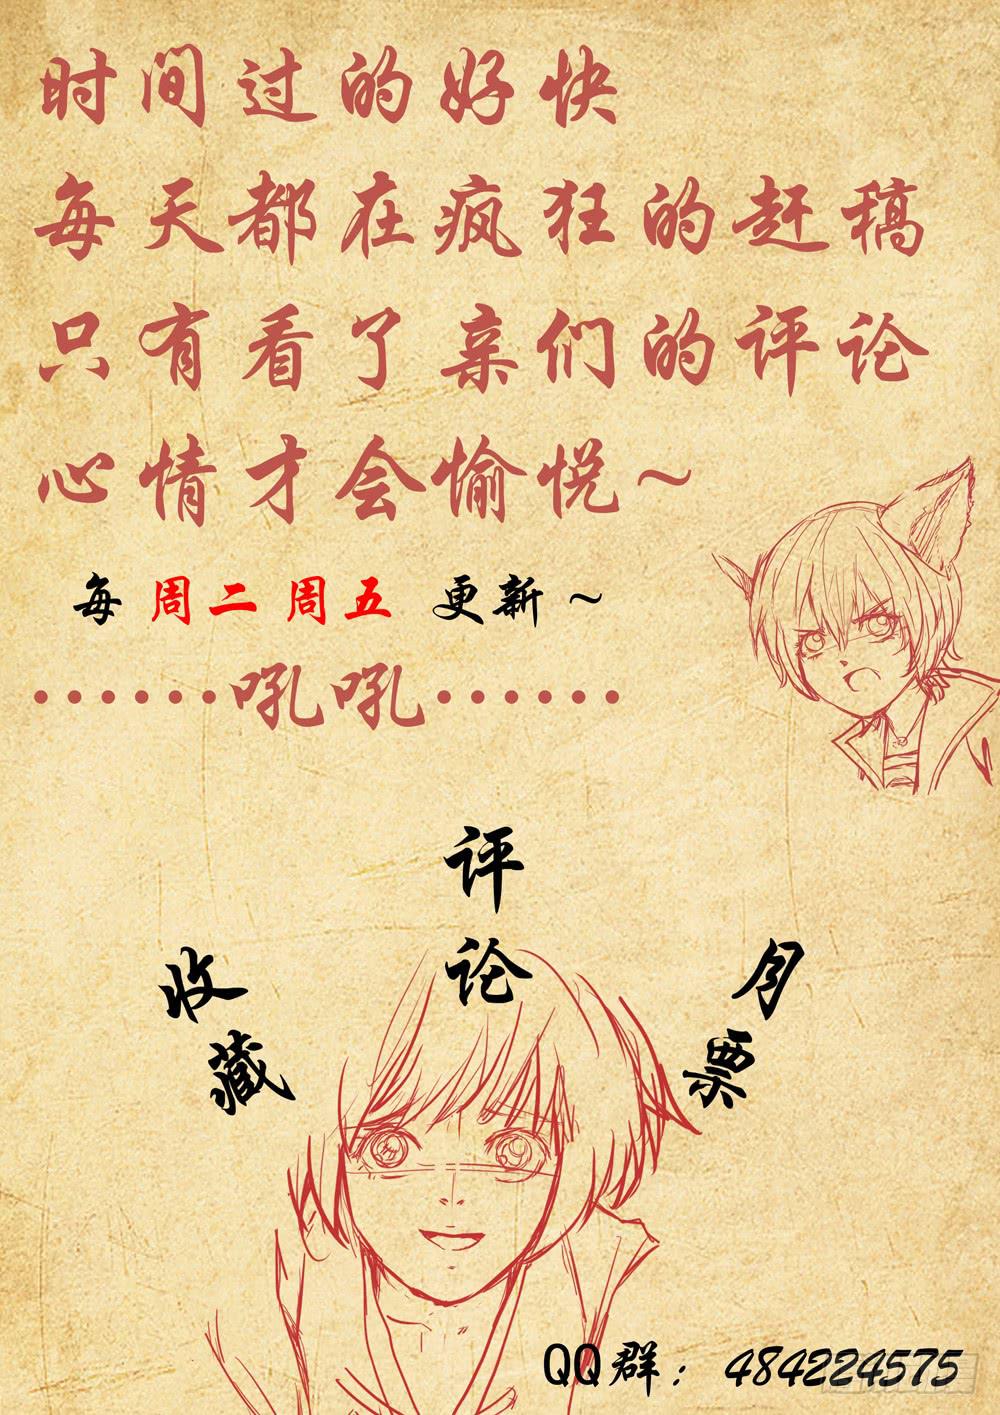 时间过的好快
每天都在疯狂的赶稿
只有看了亲们的评论
心情才会愉悦~
每 周二 周五 更新~
······吼吼······
评论
收藏
月票
QQ群：484224575